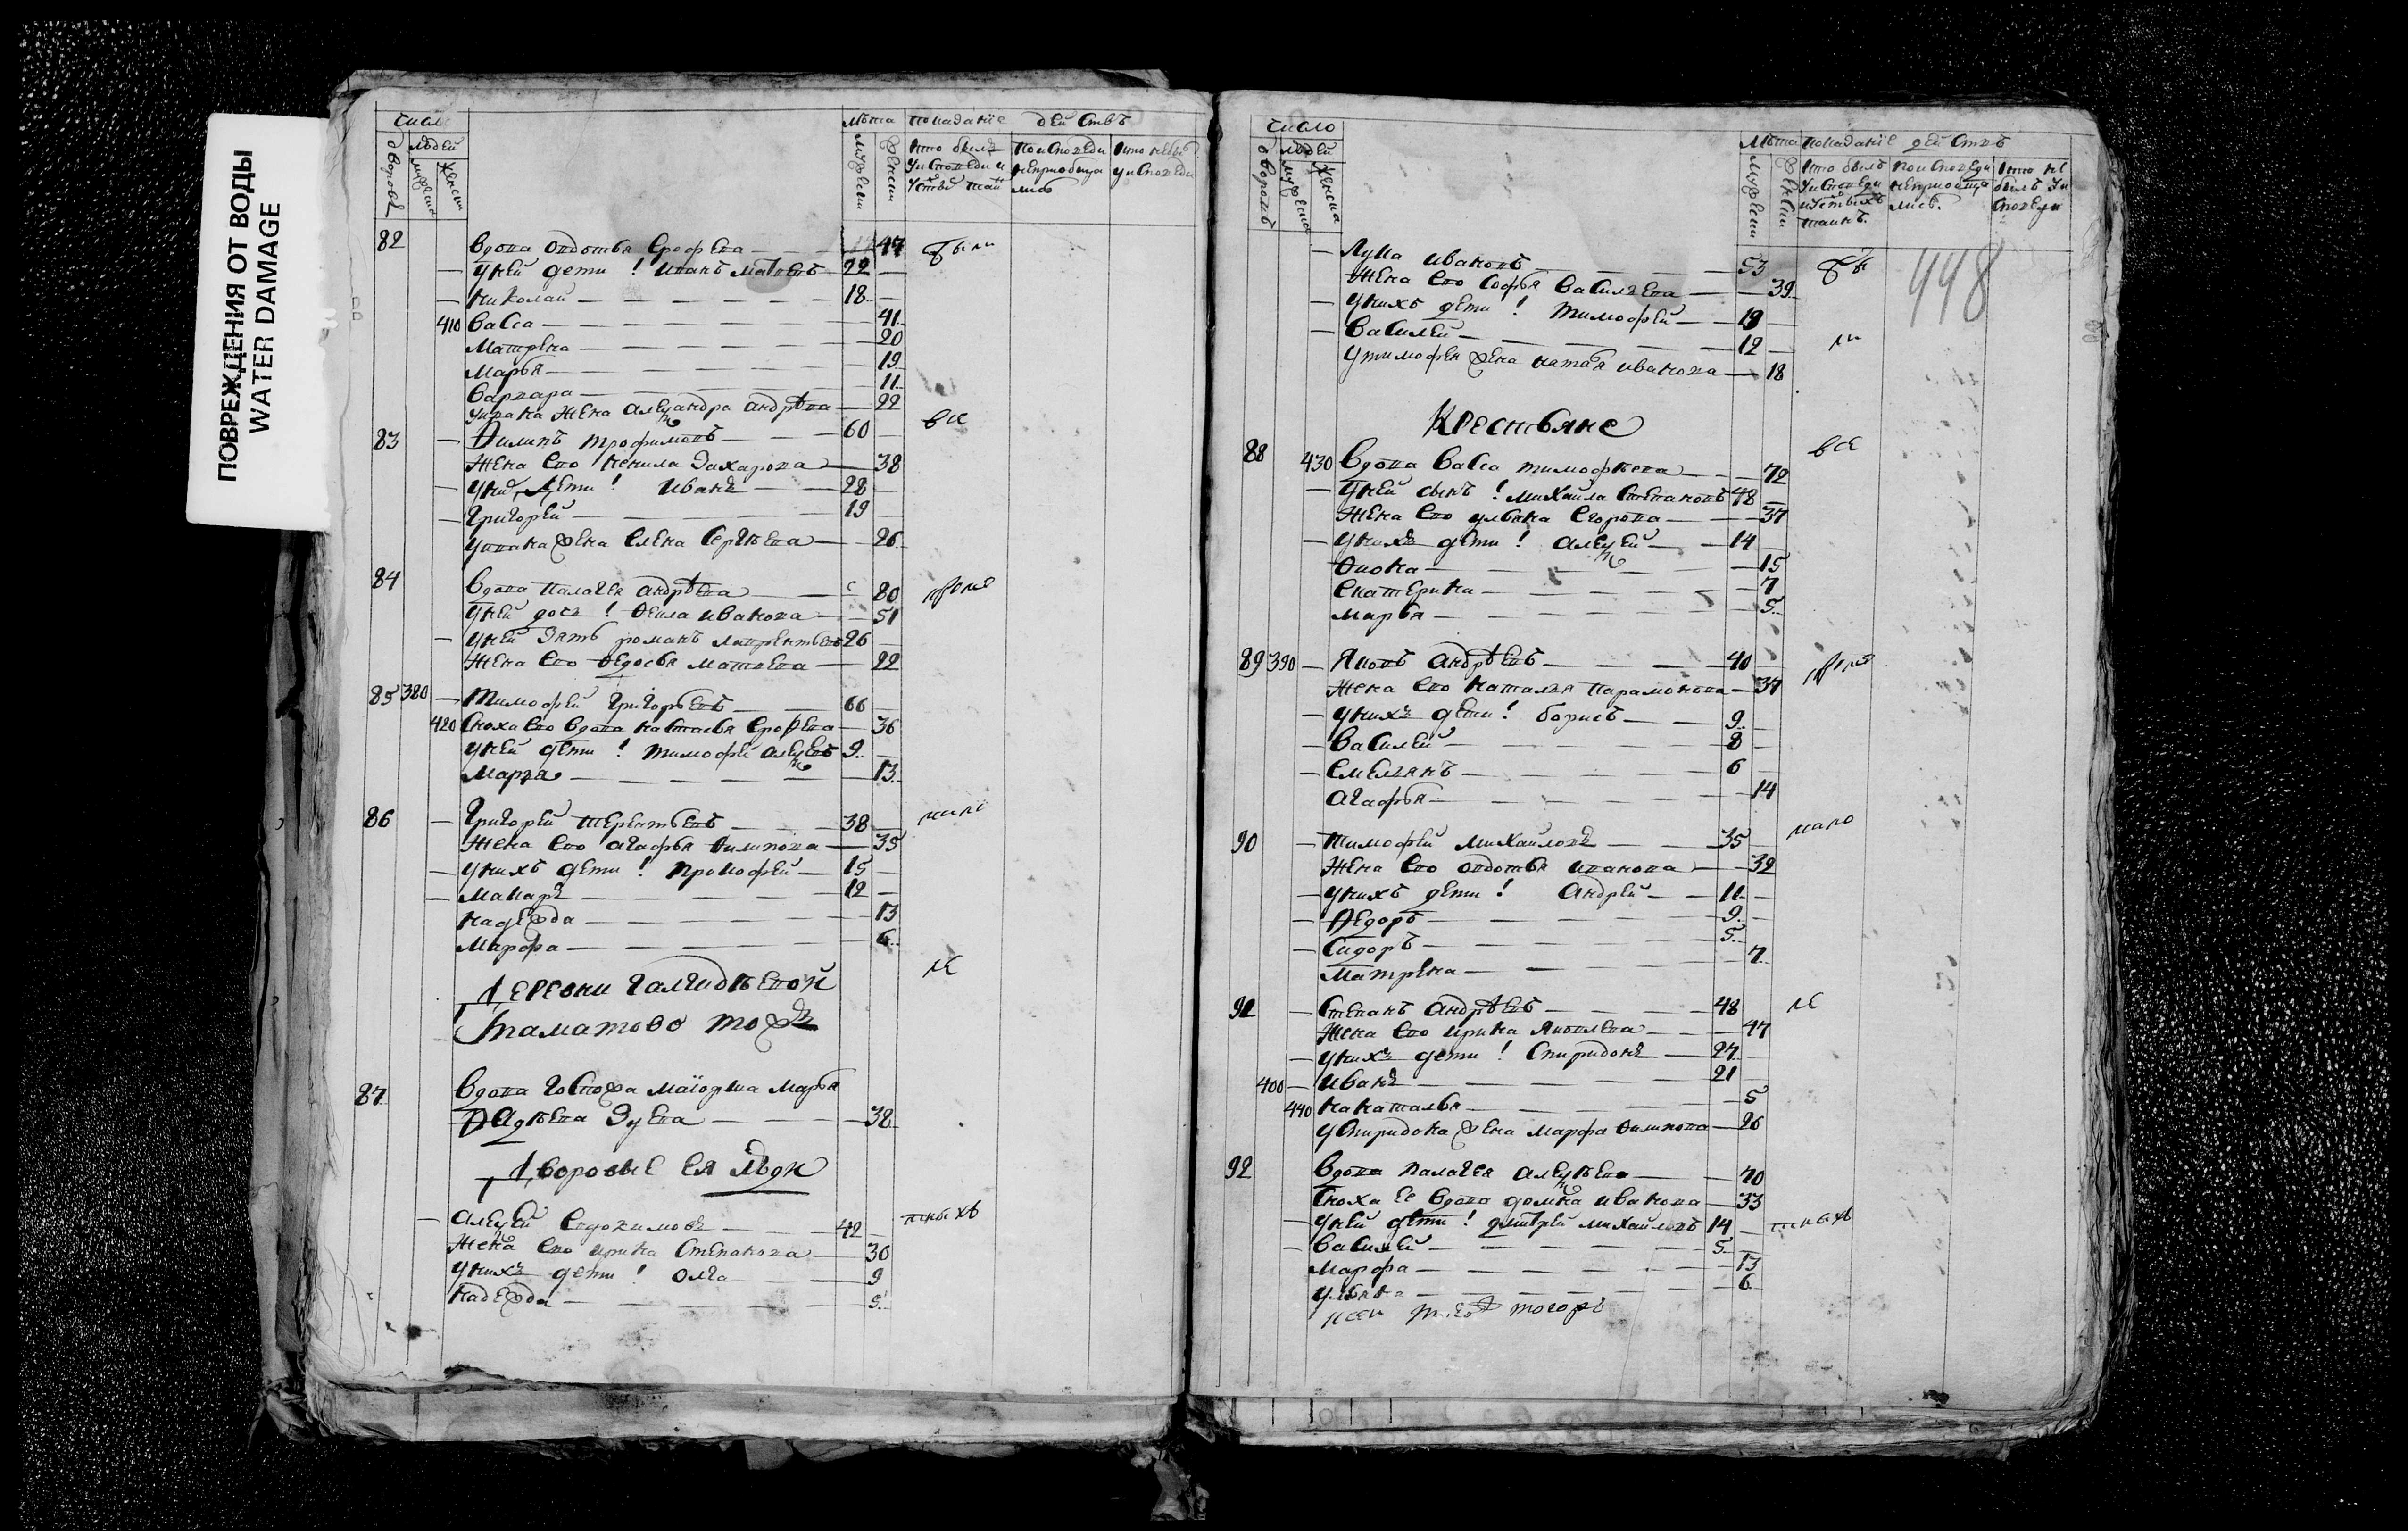 ПОВРЕЖДЕНИЯ ОТ ВОДЫ
WATER DAMAGE
число лѣта показание действъ
дворовъ людей мужеска женска мужеск женск кто былъ у исповеди и по исповеди не приобща лись кто не былъ у исповеди
82 вдова овдотья Ерофеева 47 были
у ней дети ! иванъ матвеевъ 22
николай 18
410 васса 41
матрена 20
марья 19
варвара 11
у ивана жена александра андрѣева 22
83 Филипъ трофимовъ 60 все
жена ево ненила Захарова 38
у них дети ! иванъ 28
григорей 19
у ивана жена елена сергѣева 26
84 вдова палагея андрѣева 80 кроме
у ней дочь ! Фекла иванова 51
у ней зять романъ лаврентьевъ 26
жена ево Федосья матвеева 22
85 380 тимофей григорьевъ 66
420 сноха ево вдова настасья ерофеева 36
у ней дети ! тимофей алексеевъ 9
марфа 13
86 григорей терентьевъ 38 мало
жена ево агафья Филипова 35
у нихъ дети ! прокофей 15
макаръ 12
надежда 13
марфа 6
деревни ле
Стаматово тожъ
87 вдова госпожа маіорша марья
Фадѣева Зуева 38
дворовые ея люди
алексей Евдокимовъ 42 тныхъ
жена ево ирина степанова 30
у нихъ дети ! олга 9
надежда 5
число лѣта показание действъ
дворовъ людей мужеска женска мужеск женск кто былъ у исповеди и у светыхъ таинъ по исповеди не приобща лись кто не былъ у исповеди
Лука ивановъ 53 бы 448
жена ево софья василева 39
у нихъ дети ! тимофей 19
василей 12 ли
у тимофея жена наталя иванова 18
Крестьяне
88 430 вдова васса тимофѣева 72 все
у ней сынъ ! михаила степановъ 48
жена ево ульяна егорова 37
у нихъ дети ! алексей 14
Фиона 15
екатерина 7
марья 5
89 390 Яковъ андрѣевъ 40 кроме
жена ево наталья парамонова 37
у нихъ дети ! борисъ 9
василей 8
емельянъ 6
агафья 14
90 тимофей михайловъ 35 мало
жена ево овдотья иванова 32
у нихъ дети ! андрей 11
Федоръ 9
сидоръ 5
матрена 7
91 степанъ андрѣевъ 48 ле
жена ево ирина Яковлева 47
у нихъ дети ! спиридонъ 27
400 иванъ 21
440 5
у спиридона жена марфа Филипова 26
92 вдова палагея алексѣева 70
сноха ее вдова домна иванова 33
у ней дети ! дмитрей михайловъ 14 тныхъ
василей 5
марфа 13
ульяна 6